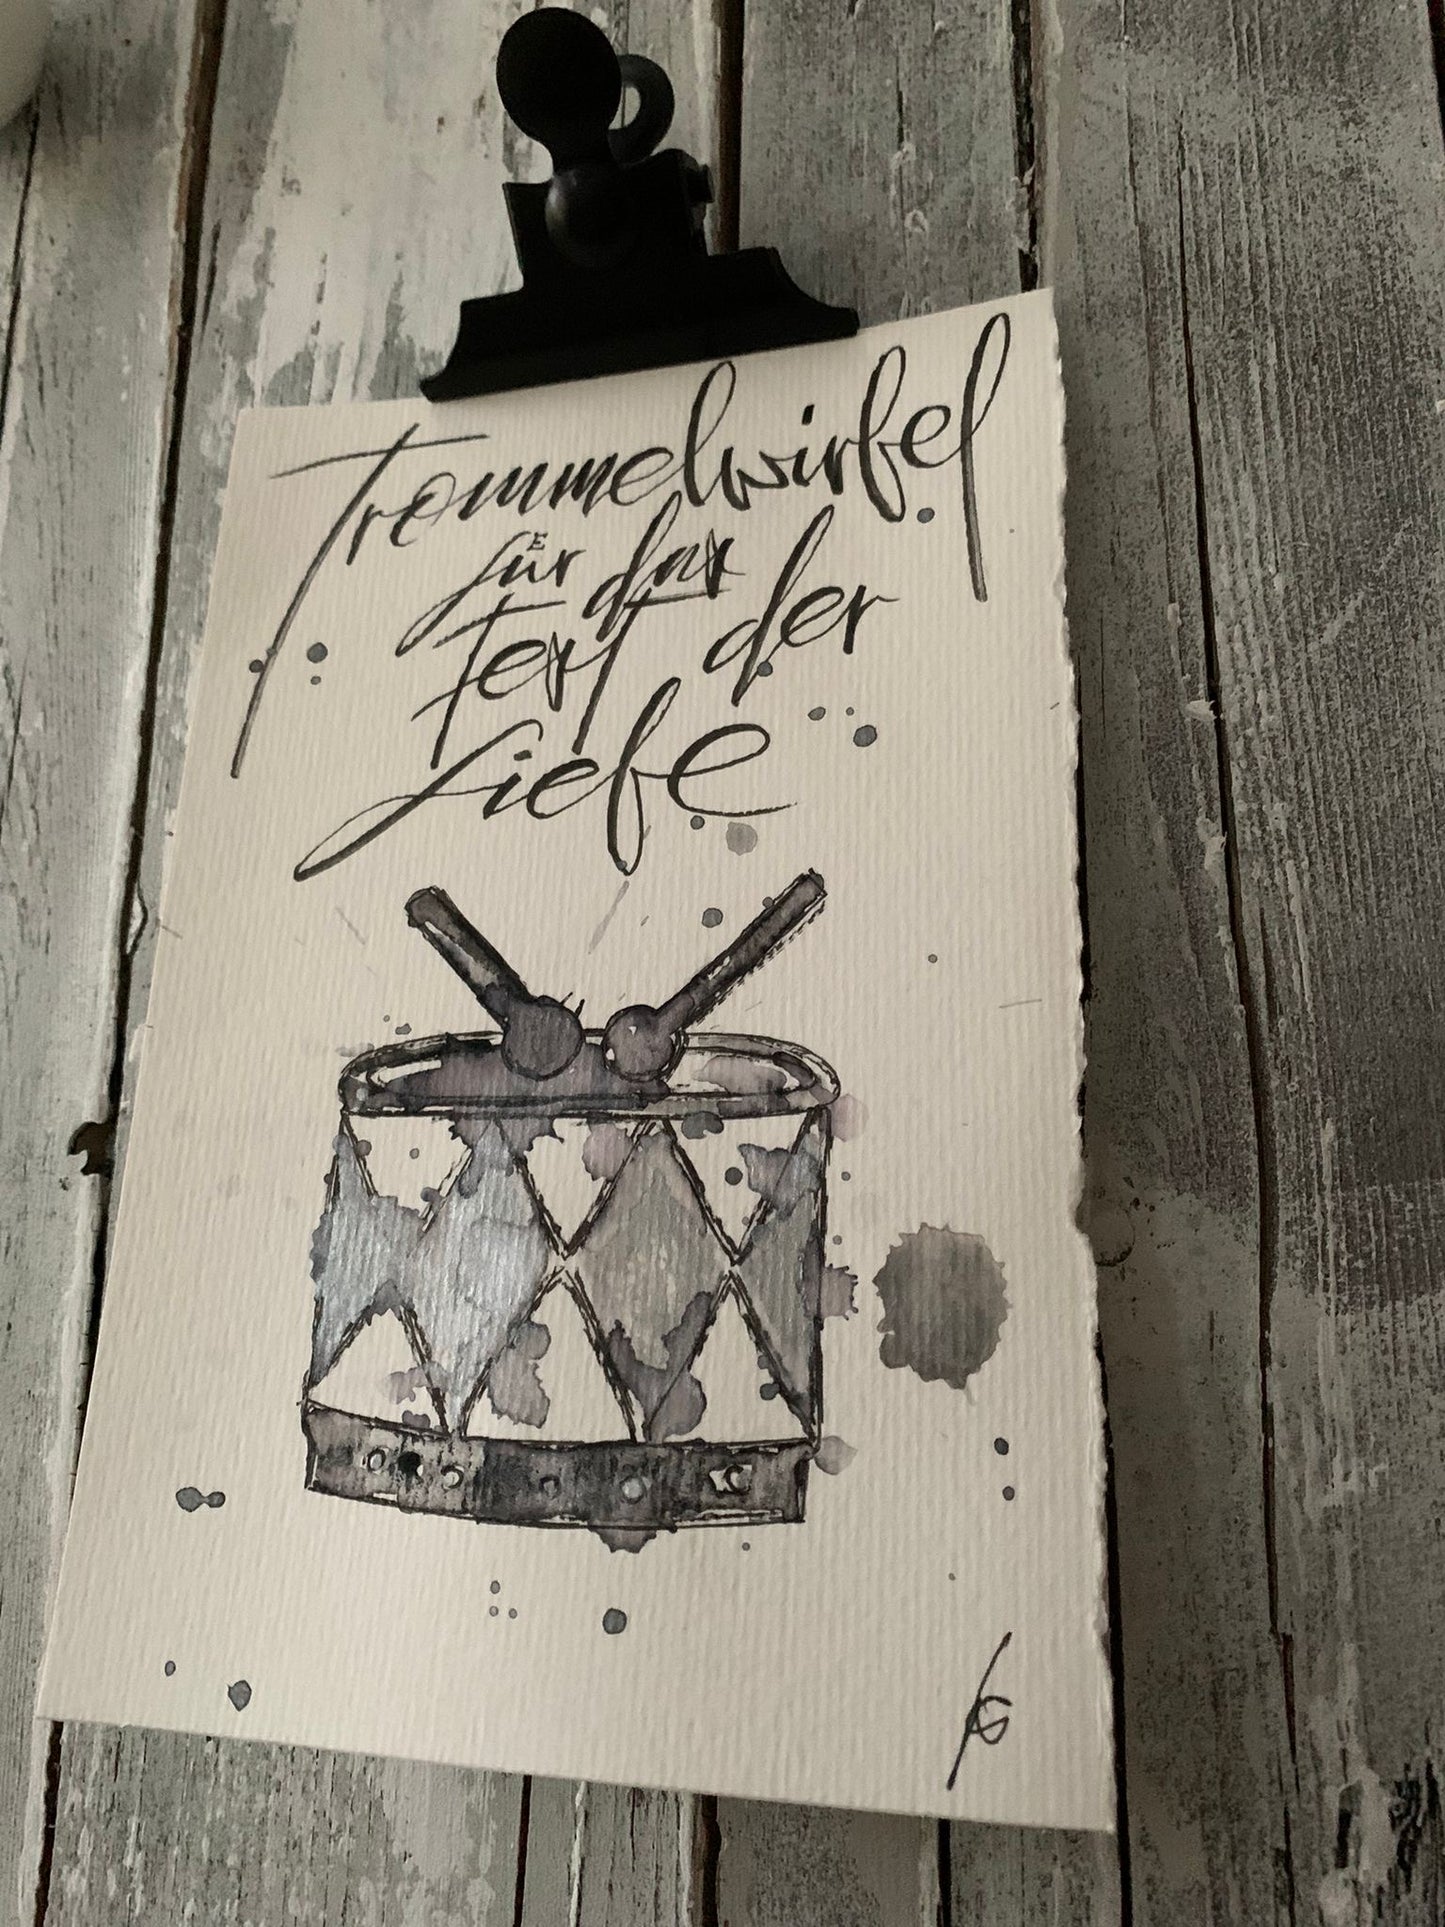 Trommelwirbel
für das
Fest der
Liebe